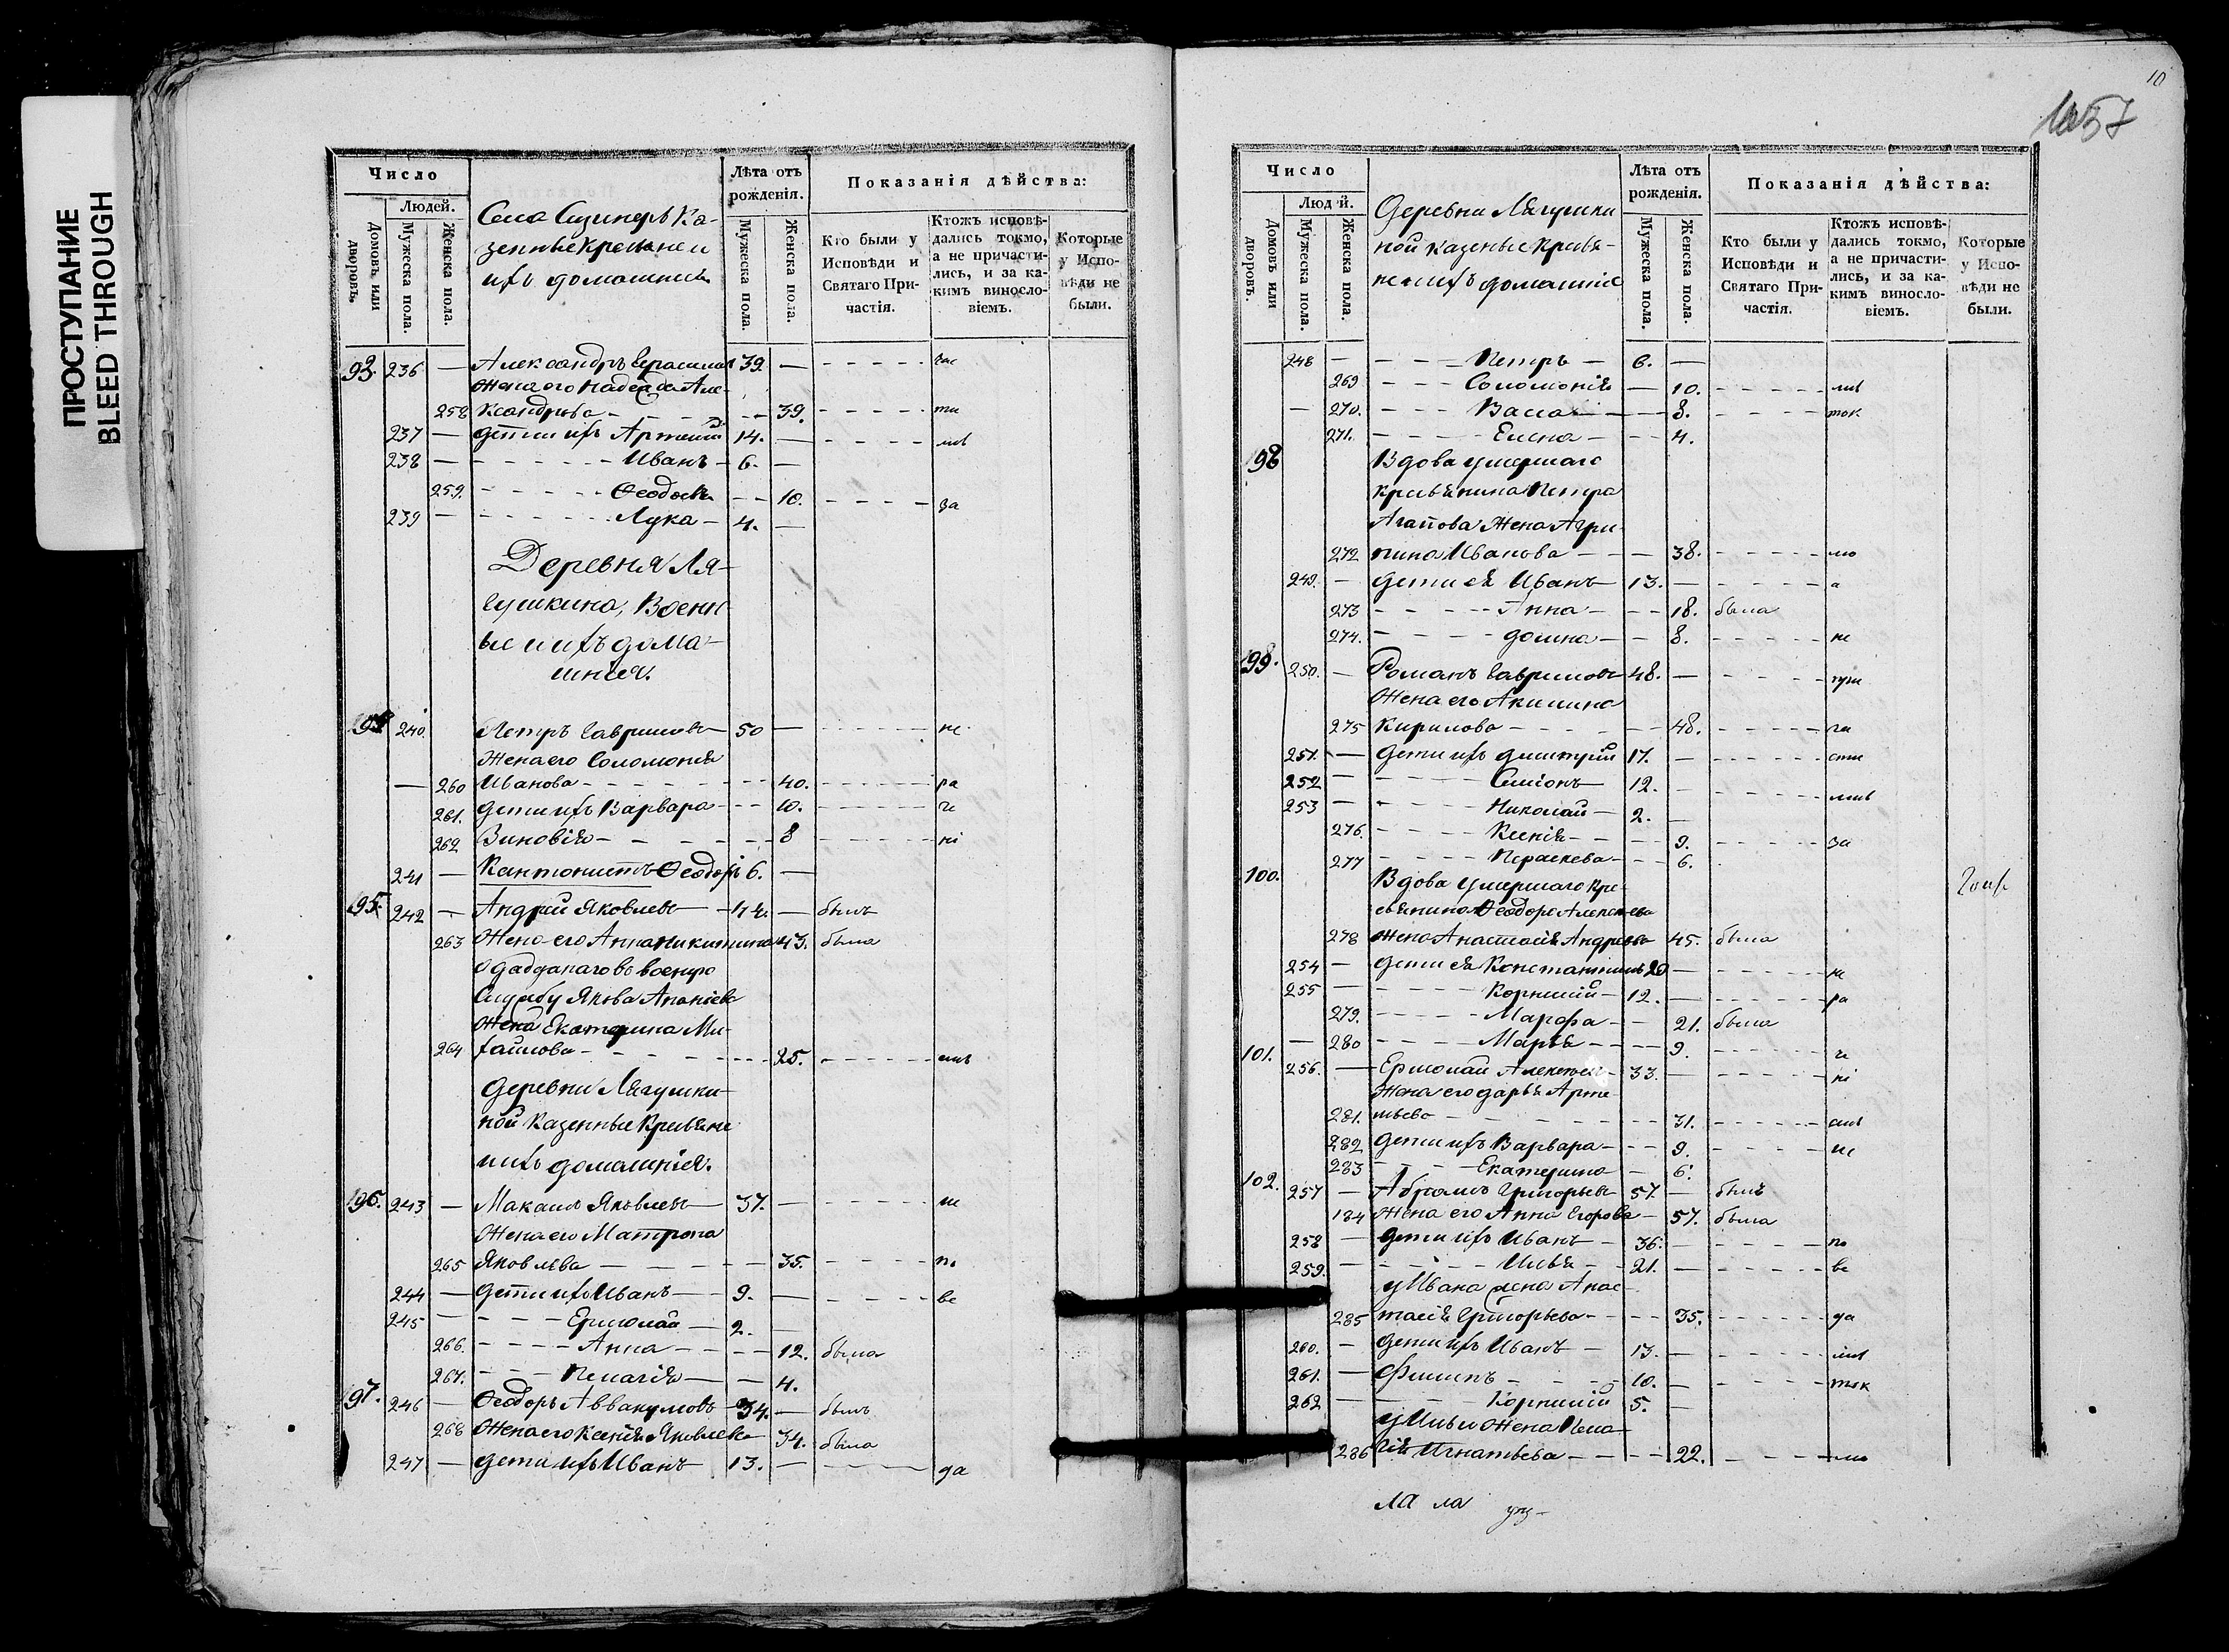 ПРОСТУПАНИЕ
BLEED THROUGH
Число
Людей.
Домовъ или дворовъ.
Мужеска пола.
Женска пола.
Села Казенные крестьяне и ихъ домашніе
Лѣта отъ рожденія.
Мужеска пола.
Женска пола.
Показанія дѣйства:
Кто были у Исповѣди и Святаго Причастія.
Ктожъ исповѣдались токмо, а не причастились, и за какимъ винословіемъ.
Которые у Исповѣди не были.
93 236 — Александръ Герасимовъ 39. —
Жена его Надежда Але-
258 ксандрова — 39.
237 — дети ихъ Артемій 14. —
238 — Иванъ — 6. —
259. Ѳеодосія 10. за
239 — Лука — 4. —
Деревня Ля-
гушкина, Военн
ые и ихъ дома-
шнія.
94 240. Петръ Гавриловъ 50 — не
Жена его Соломонія
— 260 Иванова — 40. ра
261. дети ихъ Варвара 10. че
262 Зиновія — 8 ні
241 — Кантонистъ Ѳеодоръ 6. —
95. 242 — Андрей Яковлевъ 42. — былъ
263 Жена его Анна Никитина 43. была
отданаго въ военную
службу Якова Ананіева
Жена Екатерина Ми-
264 хайлова — 25.
деревни Лягушки-
ной Казенные Крестьяне
и ихъ домашнія.
96. 243 — Максимъ Яковлевъ 37. — не
Жена его Матрона
265 Яковлева — 35. по
244 — дети ихъ Иванъ 9. — ве
245 — Ермолай — 2. —
266. Анна 12. была
267. Пелагія — 4.
97. 246 — Ѳеодоръ Аввакумовъ 34. — былъ
268 Жена его Ксенія Яковлева 34. была
247 — дети ихъ Иванъ 13. — да
10
1057
Число
Людй.
Домовъ или дворовъ.
Мужеска пола.
Женска пола.
Деревни Лягушки
ной казенные крестья-
не и ихъ домашніе
Лѣта отъ рожденія.
Мужеска пола.
Женска пола.
Показанія дѣйства:
Кто были у Исповѣди и Святаго Причастія.
Ктожъ исповѣдались токмо, а не причастились, и за какимъ винословіемъ.
Которые у Исповѣди не были.
248 — Петръ — 6. —
269 Соломонія — 10.
— 270. Васса — 8. ток
271. Елена — 4.
98 Вдова умершаго
крестьянина Петра
Агапова Жена Агри-
272 пина Иванова — 38. мо
249. — дети ея Иванъ 13. — а
273 Анна — 18. была
274. домна — 8. не
99. 250. — Романъ Гавриловъ 48. — при
Жена его Акилина
275 Кирилова — 48. ча
251. — дети ихъ дмитрій 17. — сти
252 — Симіонъ 12. —
253 — Николай 2. —
276. Ксенія — 9. за
277 Параскева — 6.
100. Вдова умершаго Кре-
стьянина Ѳеодора Алексѣева
278 Жена Анастасія Андреева 45. была
254 — дети ея Константинъ 20 — не
255 — Корнилій — 12. — ра
279. Марфа — 21. была
— 280 Марья — 9. че
101. 256. — Ермолай Алексѣевъ 33. — ні
Жена его дарья Арте-
281. мьева — 31.
282 дети ихъ Варвара — 9. не
283 Екатерина 6.
102. 257 — Абрамъ Григорьевъ 57. — былъ
184 Жена его Анна Егорова 57. была
258 — дети ихъ Иванъ 36. — по
259. — Илья 21. — ве
у Ивана жена Анас-
285 тасія Григорьева — 35. да
260. — дети ихъ Иванъ — 13. —
261. — Филипъ 10. — ток
262 — Корнилій 5. —
у Ильи жена Пела-
286 гія Игнатьева — 22. мо
ла ла